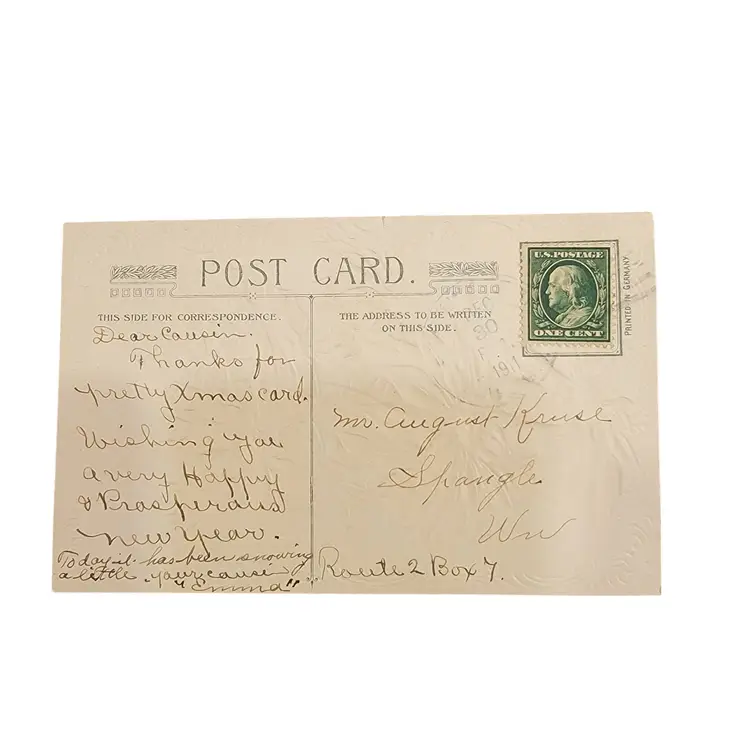 POST CARD.
THIS SIDE FOR CORRESPONDENCE.
Dear Cousin.
Thanks for
pretty Xmas card.
Wishing you
a very Happy
& Prosperous
New Year.
Today it has been snowing
a little. your cousin
"Emma"
THE ADDRESS TO BE WRITTEN
ON THIS SIDE.
DEC
30
1911
U.S. POSTAGE
ONE CENT
PRINTED IN GERMANY
Mr. August Kruse
Spangle
Wn
Route 2 Box 7.